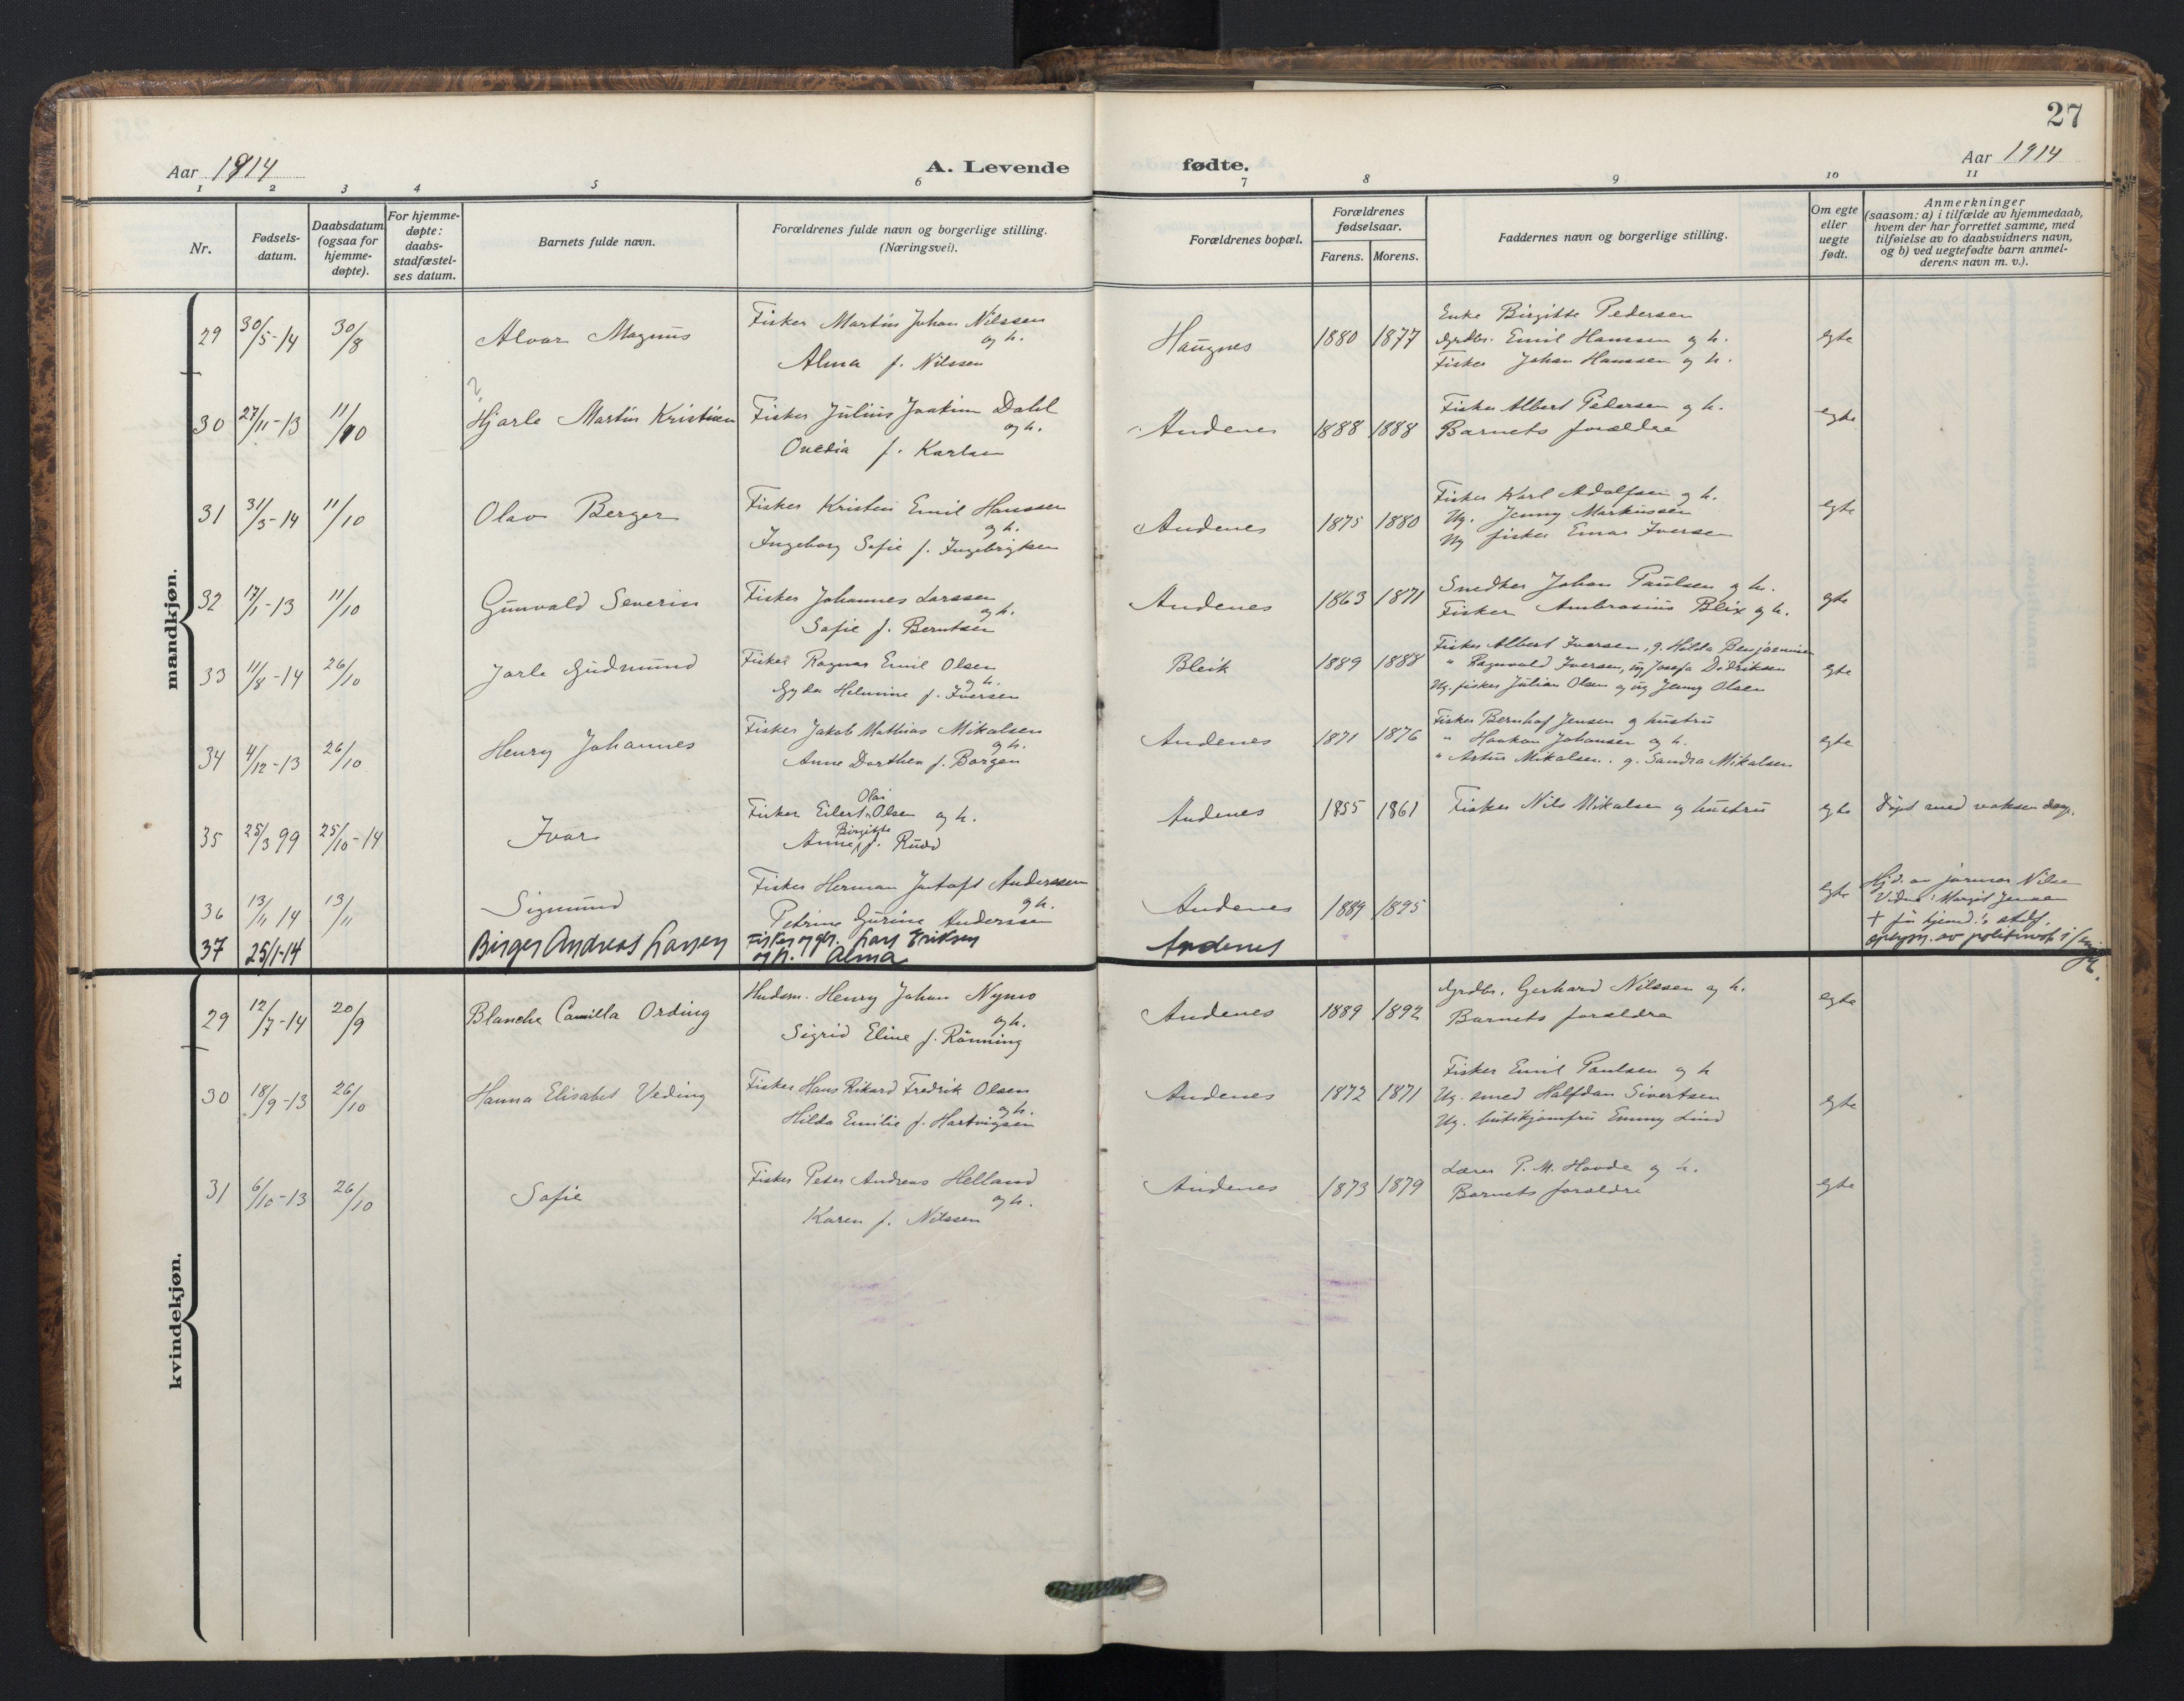 27
Aar 1914
A. Levende
fødte.
Aar 1914
1 2 3 4 5 6 7 8 9 10 11
Nr.
Fødsels-
datum.
Daabsdatum
(ogsaa for
hjemme-
døpte).
For hjemme-
døpte:
daabs-
stadfæstel-
ses datum.
Barnets fulde navn.
Forældrenes fulde navn og borgerlige stilling.
(Næringsvei).
Forældrenes bopæl.
Forældrenes
fødselsaar.
Farens. Morens.
Faddernes navn og borgerlige stilling.
Om egte
eller
uegte
født.
Anmerkninger
(saasom: a) i tilfælde av hjemmedaab,
hvem der har forrettet samme, med
tilføielse av to daabsvidners navn,
og b) ved uegtefødte barn anmel-
derens navn m. v.).
mandkjøn.
29 30/5-14 30/8 Alvar Magnus
Fisker Martin Johan Nilssen
og h.
Alma f. Nilssen
Haugnes 1880 1877
Enke Birgitte Pedersen
Grdbr. Emil Hanssen og h.
Fisker Johan Hanssen og h.
egte
30 27/11-13 11/10 Hjarle Martin Kristian
Fisker Julius Joakim Dahl
og h.
Onedia f. Karlsen
Andenes 1888 1888
Fisker Albert Pedersen og h.
Barnets forældre
egte
31 31/3-14 11/10 Olav Berger
Fisker Kristen Emil Hanssen
og h.
Ingeborg Sofie f. Ingebrigtsen
Andenes 1875 1880
Fisker Karl Adolfsen og h.
Ug. Jenny Markussen
Ug fisker Einar Iversen
egte
32 17/1-13 11/10 Gunvald Severin
Fisker Johannes Larssen
og h.
Sofie f. Berntsen
Andenes 1863 1871
Snedker Johan Paulsen og h.
Fisker Ambrosius Blix og h.
egte
33 11/8-14 26/10 Jarle Gudmund
Fisker Ragnar Emil Olsen
og h.
Gyda Helmine f. Iversen
Bleik 1889 1888
Fisker Albert Iversen, g. Hilda Benjaminsen
" Ragnvald Iversen, ug Josefa Didriksen
Ug. fisker Julian Olsen og ug Jenny Olsen
egte
34 4/12-13 26/10 Henry Johannes
Fisker Jakob Mathias Mikalsen
og h.
Anne Dorthea f. Borgen
Andenes 1871 1876
Fisker Bernhof Jensen og hustru
" Haakon Johansen og h.
" Artur Mikalsen. g. Sandra Mikalsen
egte
35 25/3 99 25/10-14 Ivar
Olai
Fisker Eilert Olsen og h.
Birgitte
Anne f. Rudd
Andenes 1855 1861
Fisker Nils Mikalsen og hustru
egte
Døpt med voksen daap.
36 13/11 14 13/11 Sigmund
Fisker Herman Gustaft Anderssen
og h.
Petrine Gurine Anderssen
Andenes 1889 1895
egte
Hj.d. av jormor Nilsen
Vidne: Margit Jensen
+ før hjemd.'s stdf.
37 25/1-14 Birger Andreas Larsen
Fisker og gbr. Lars Eriksen
og h. Alma
Andenes
kvindekjøn.
29 12/7-14 20/9 Blanche Camilla Ording
Hudsm. Henry Johan Nymo
og h.
Sigrid Eline f. Rønning
Andenes 1889 1892
Grdbr. Gerhard Nilssen og h.
Barnets forældre
egte
30 18/9-13 26/10 Hanna Elisabet Veding
Fisker Hans Rikard Fredrik Olsen
og h.
Hilda Emilie f. Hartvigsen
Andenes 1872 1871
Fisker Emil Paulsen og h
Ug. smed Halfdan Sivertsen
Ug. butikjomfru Emmy Lind
egte
31 6/10-13 26/10 Sofie
Fisker Peter Andreas Helland
og h.
Karen f. Nilssen
Andenes 1873 1879
Lærer P. M. Hovde og h.
Barnets forældre
egte